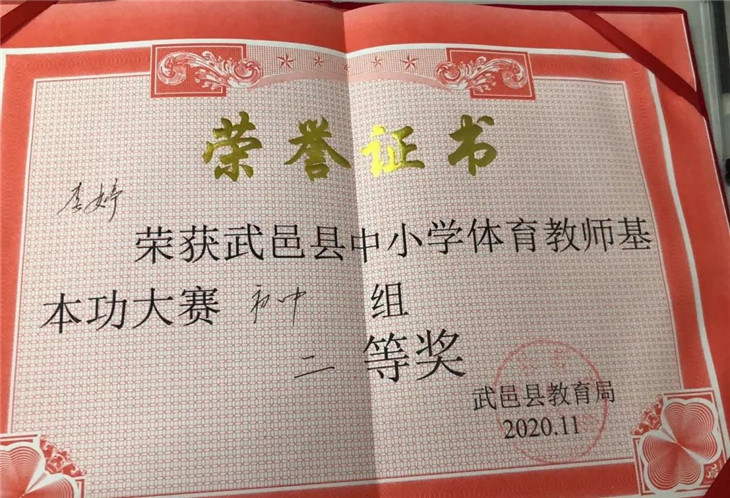 荣誉证书
李婷
荣获武邑县中小学体育教师基
本功大赛 初中 组
二 等奖
武邑县教育局
2020.11